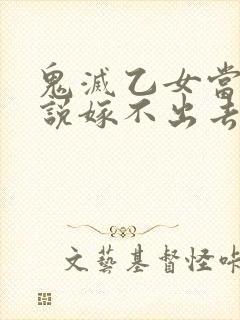 鬼滅乙女當
說嫁不出去
文藝基督怪咔